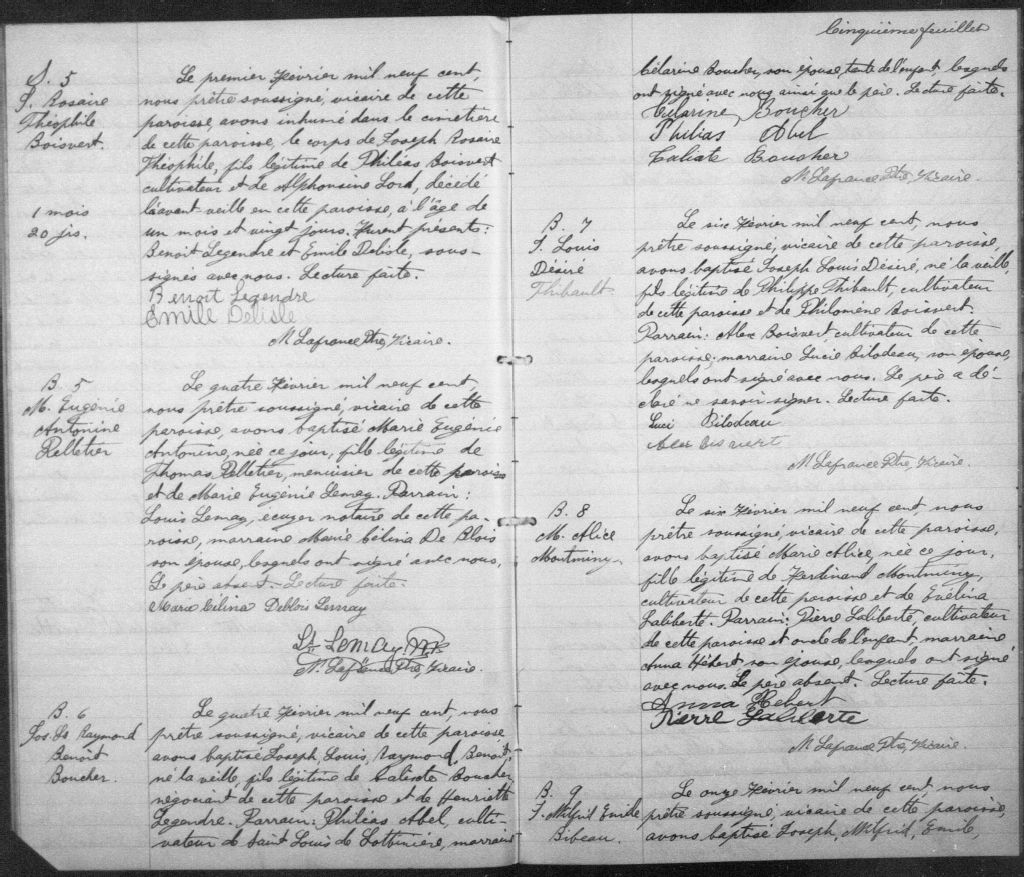 S. 5
J. Rosaire
Théophile
Boisvert.
1 mois
20 jrs.
Le premier Février mil neuf cent,
nous prêtre soussigné, vicaire de cette
paroisse, avons inhumé dans le cimetière
de cette paroisse, le corps de Joseph Rosaire
Théophile, fils légitime de Philéas Boisvert
cultivateur et de Alphonsine Lord, décédé
l'avant-veille en cette paroisse, à l'âge de
un mois et vingt jours. Furent présents:
Benoit Legendre et Emile Delisle, sous-
signés avec nous. Lecture faite.
Benoit Legendre
Emile Delisle
N. Lafrance Ptre, Vicaire.
B. 5
M. Eugénie
Antonine
Pelletier
Le quatre Février mil neuf cent,
nous prêtre soussigné, vicaire de cette
paroisse, avons baptisé Marie Eugénie
Antonine, née ce jour, fille légitime de
Thomas Pelletier, menuisier de cette paroisse
et de Marie Eugénie Lemay. Parrain:
Louis Lemay, écuyer notaire de cette pa-
roisse, marraine Marie Célina De Blois
son épouse, lesquels ont signé avec nous,
Le père absent. Lecture faite.
Marie Célina Deblois Lemay
Ls Lemay
N. Lafrance Ptre, Vicaire.
B. 6
Jos. Ls Raymond
Benoit
Boucher.
Le quatre Février mil neuf cent, nous
prêtre soussigné, vicaire de cette paroisse
avons baptisé Joseph, Louis, Raymond, Benoit,
né la veille, fils légitime de Calixte Boucher,
négociant de cette paroisse et de Henriette
Legendre. Parrain: Philéas Abel, culti-
vateur de Saint Louis de Lotbinière, marraine
Cinquième feuillet
Célarine Boucher, son épouse, tante de l'enfant, lesquels
ont signé avec nous ainsi que le père. Lecture faite.
Célarine Boucher
Philias Abel
Calixte Boucher
N. Lafrance Ptre, Vicaire.
B. 7
J. Louis
Désiré
Thibault.
Le six Février mil neuf cent, nous
prêtre soussigné, vicaire de cette paroisse,
avons baptisé Joseph Louis Désiré, né la veille,
fils légitime de Philippe Thibault, cultivateur
de cette paroisse et de Philomène Boisvert.
Parrain: Alex Boisvert, cultivateur de cette
paroisse; marraine Lucie Bilodeau, son épouse,
lesquels ont signé avec nous. Le père a dé-
claré ne savoir signer. Lecture faite.
Luci Bilodeau
Alex Boisvert
N. Lafrance Ptre, Vicaire
B. 8
M. Alice
Montminy.
Le six Février mil neuf cent, nous
prêtre soussigné, vicaire de cette paroisse,
avons baptisé Marie Alice, née ce jour,
fille légitime de Ferdinand Montminy,
cultivateur de cette paroisse et de Evélina
Laliberté. Parrain: Pierre Laliberté, cultivateur
de cette paroisse et oncle de l'enfant, marraine
Anna Hébert son épouse, lesquels ont signé
avec nous. Le père absent. Lecture faite.
Anna Hebert
Pierre Laliberte
N. Lafrance Ptre, Vicaire.
B. 9
J. Wilfrid Emile
Bibeau.
Le onze Février mil neuf cent, nous
prêtre soussigné, vicaire de cette paroisse,
avons baptisé Joseph, Wilfrid, Emile,